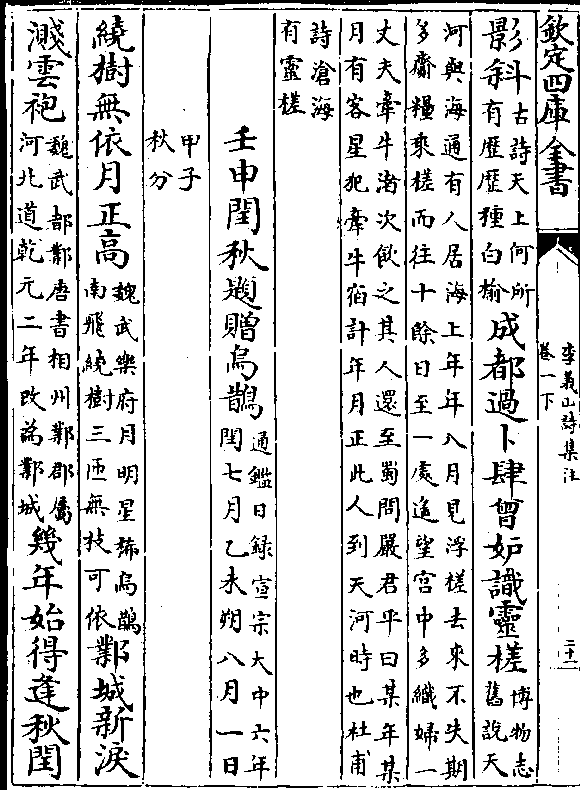 欽定四庫全書
李義山詩集注
卷一下
二十一
影斜
古詩天上何所
有歷歷種白榆
成都過卜肆曾妬識靈槎
博物志
舊說天
河與海通有人居海上年年八月見浮槎去來不失期
多齎糧乘槎而往十餘日至一處遙望宫中多織婦一
丈夫牽牛渚次飲之其人還至蜀問嚴君平曰某年某
月有客星犯牽牛宿計年月正此人到天河時也杜甫
詩滄海
有靈槎
壬申閏秋題贈烏鵲
通鑑目録宣宗大中六年
閏七月乙未朔八月一日
甲子
秋分
繞樹無依月正高
魏武樂府月明星稀烏鵲
南飛繞樹三匝無枝可依
鄴城新淚
濺雲袍
魏武都鄴唐書相州鄴郡屬
河北道乾元二年改為鄴城
幾年始得逢秋閏